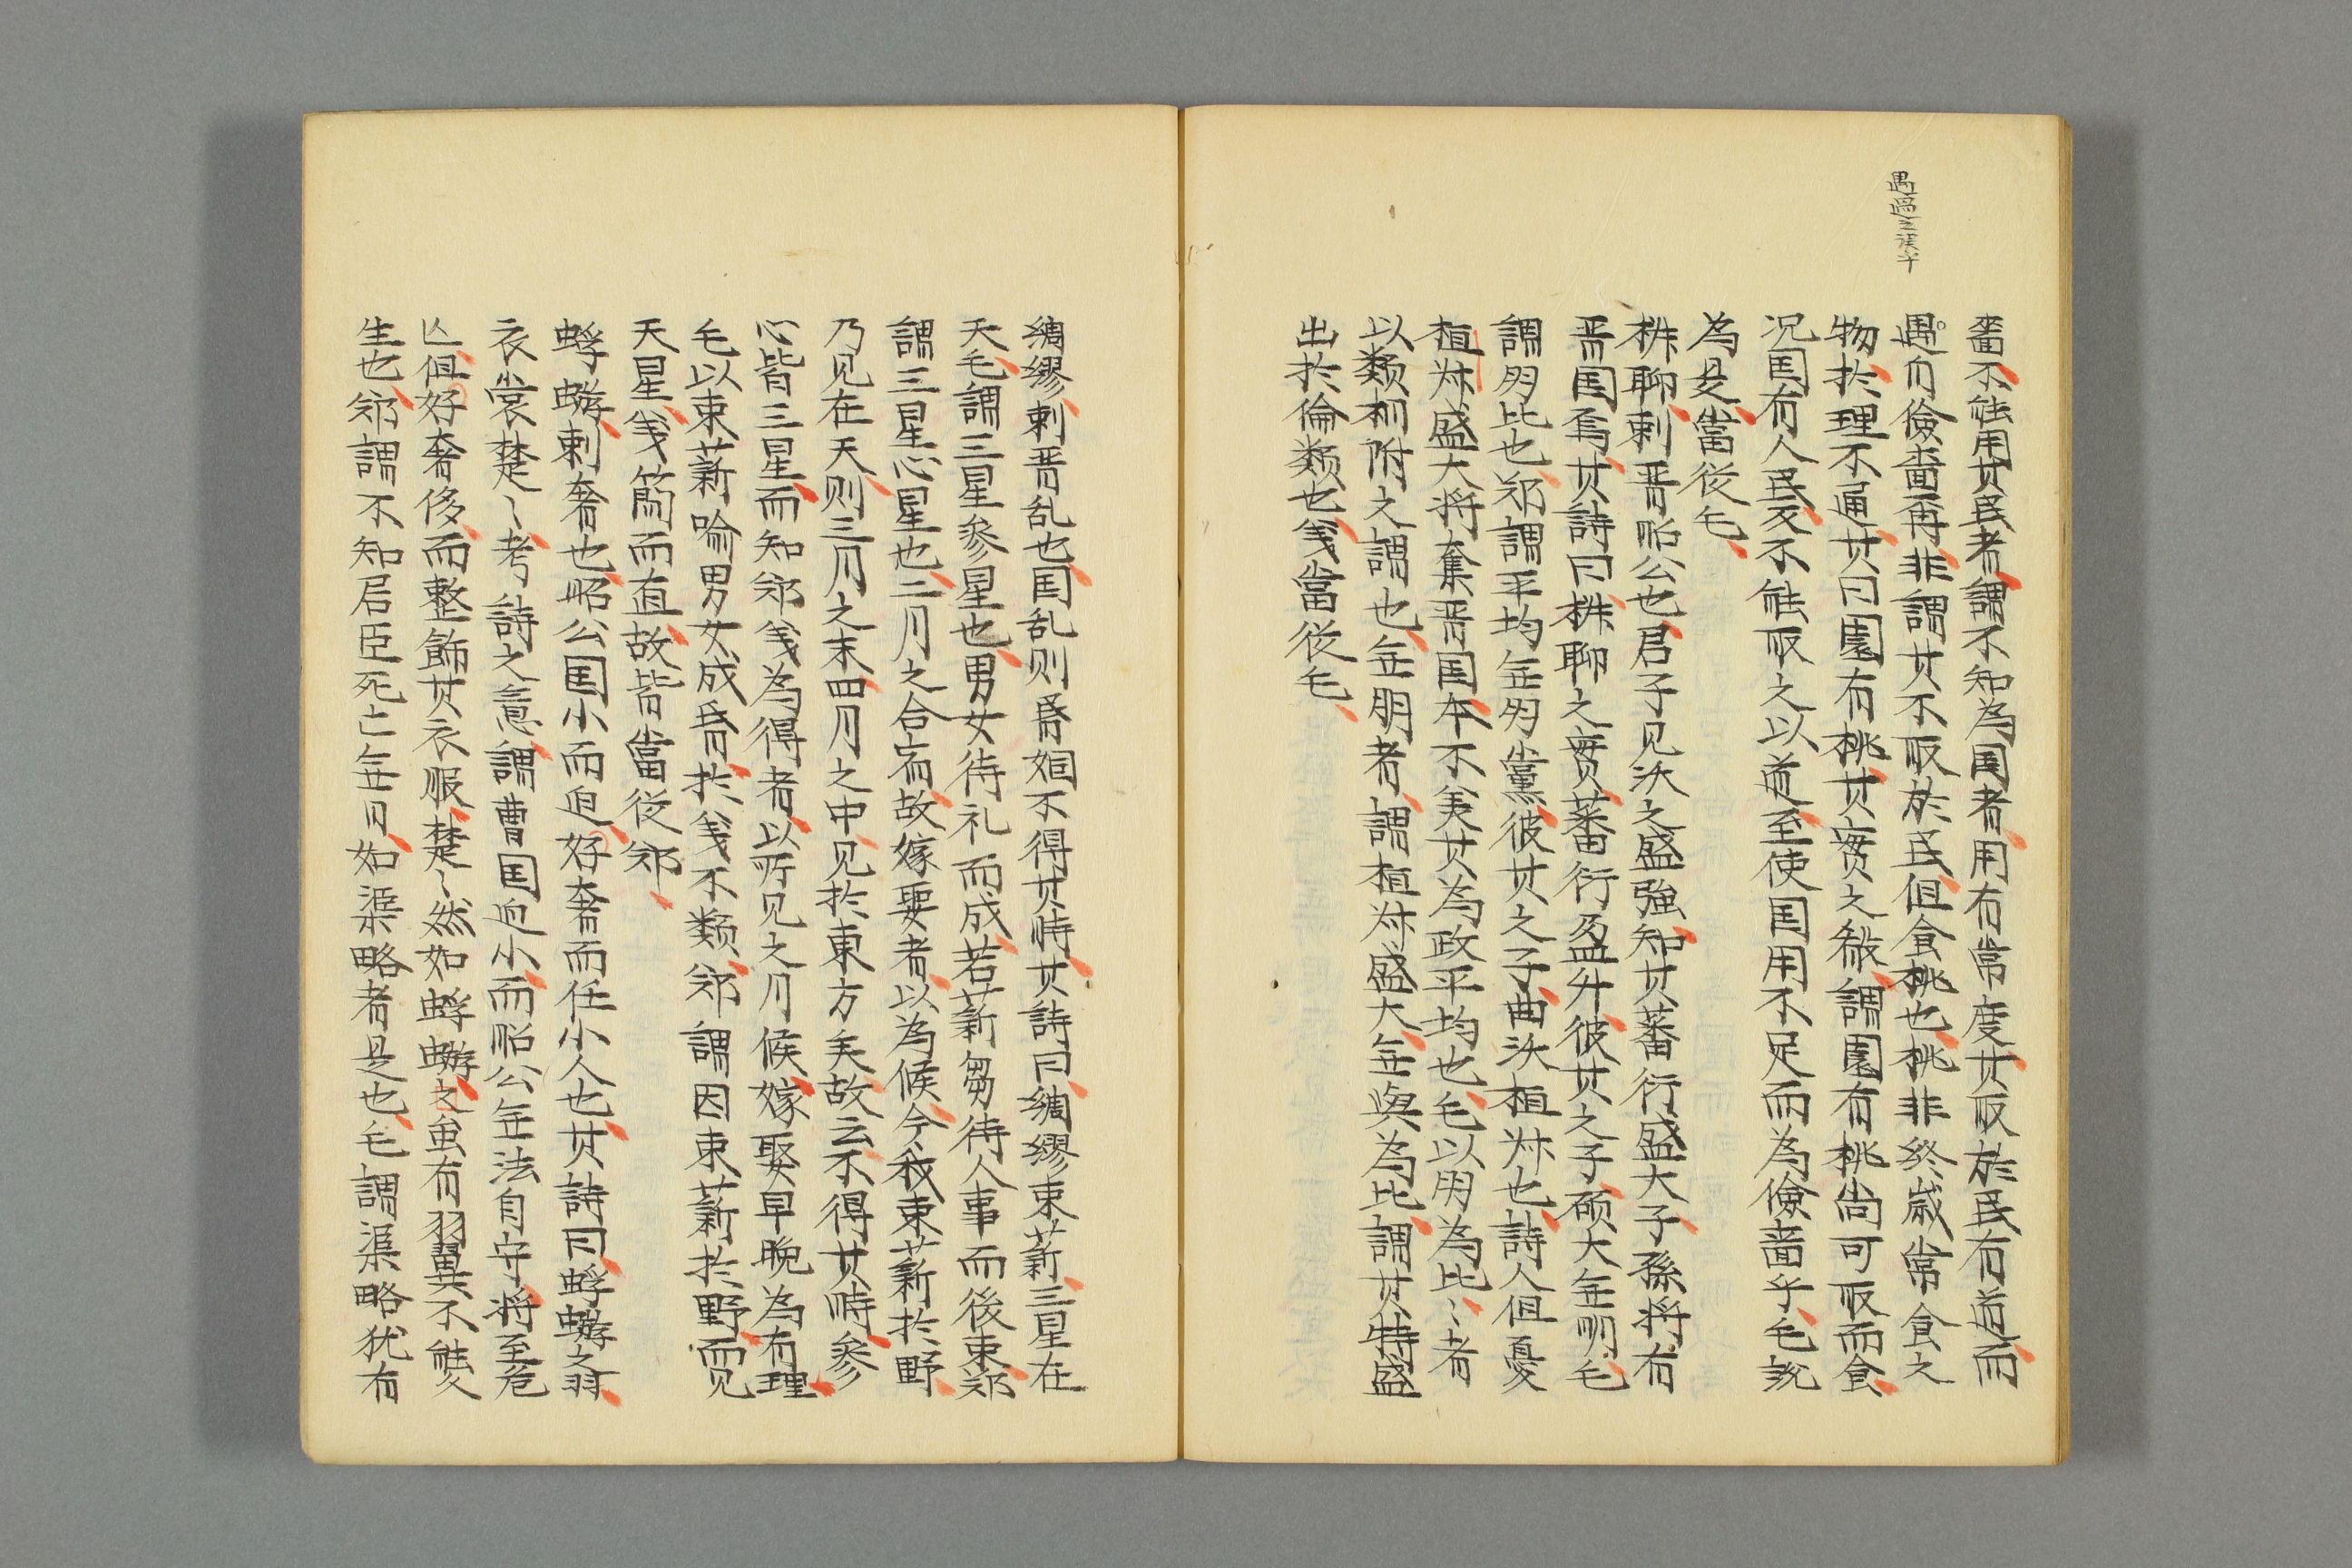 遇過之誤乎
嗇不能用其民者謂不知為国者用有常度其取於民有道而
遇自儉嗇再非謂其不取於民但食桃也桃非終歳常食之
物於理不通其曰園有桃其實之殽謂園有桃尚可取而食
况国有人民反不能取之以道至使国用不足而為儉嗇乎毛説
為是當従毛
椒聊刺晋昭公也君子见沃之盛強知其蕃衍盛大子孫将有
晋国焉其詩曰椒聊之實蕃衍盈升彼其之子碩大無朋毛
謂朋比也郑謂平均無朋黨彼其之子曲沃桓叔也詩人但憂
桓叔盛大将奪晋国本不美其為政平均也毛以朋為比〻者
以類相附之謂也無朋者謂桓叔盛大無與為比謂其特盛
出於倫類也笺當従毛
綢繆刺晋乱也国乱则昏姻不得其時其詩曰綢繆束薪三星在
天毛謂三星参星也男女待礼而成若薪芻待人事而後束郑
謂三星心星也二月之合宿故嫁娶者以為候今我束薪於野
乃见在天则三月之末四月之中见於東方矣故云不得其時参
心皆三星而知郑笺為得者以所见之月候嫁娶早晩為有理
毛以束薪喻男女成昏於笺不類郑謂因束薪於野而见
天星笺簡而直故皆當従郑
蜉蝣刺奢也昭公国小而迫好奢而任小人也其詩曰蜉蝣之羽
衣裳楚〻考詩之意謂曹国迫小而昭公無法自守将至危
亡但好奢侈而整飾其衣服楚〻然如蜉蝣之虫有羽翼不能久
生也郑謂不知君臣死亡無日如渠略者是也毛謂渠略犹有